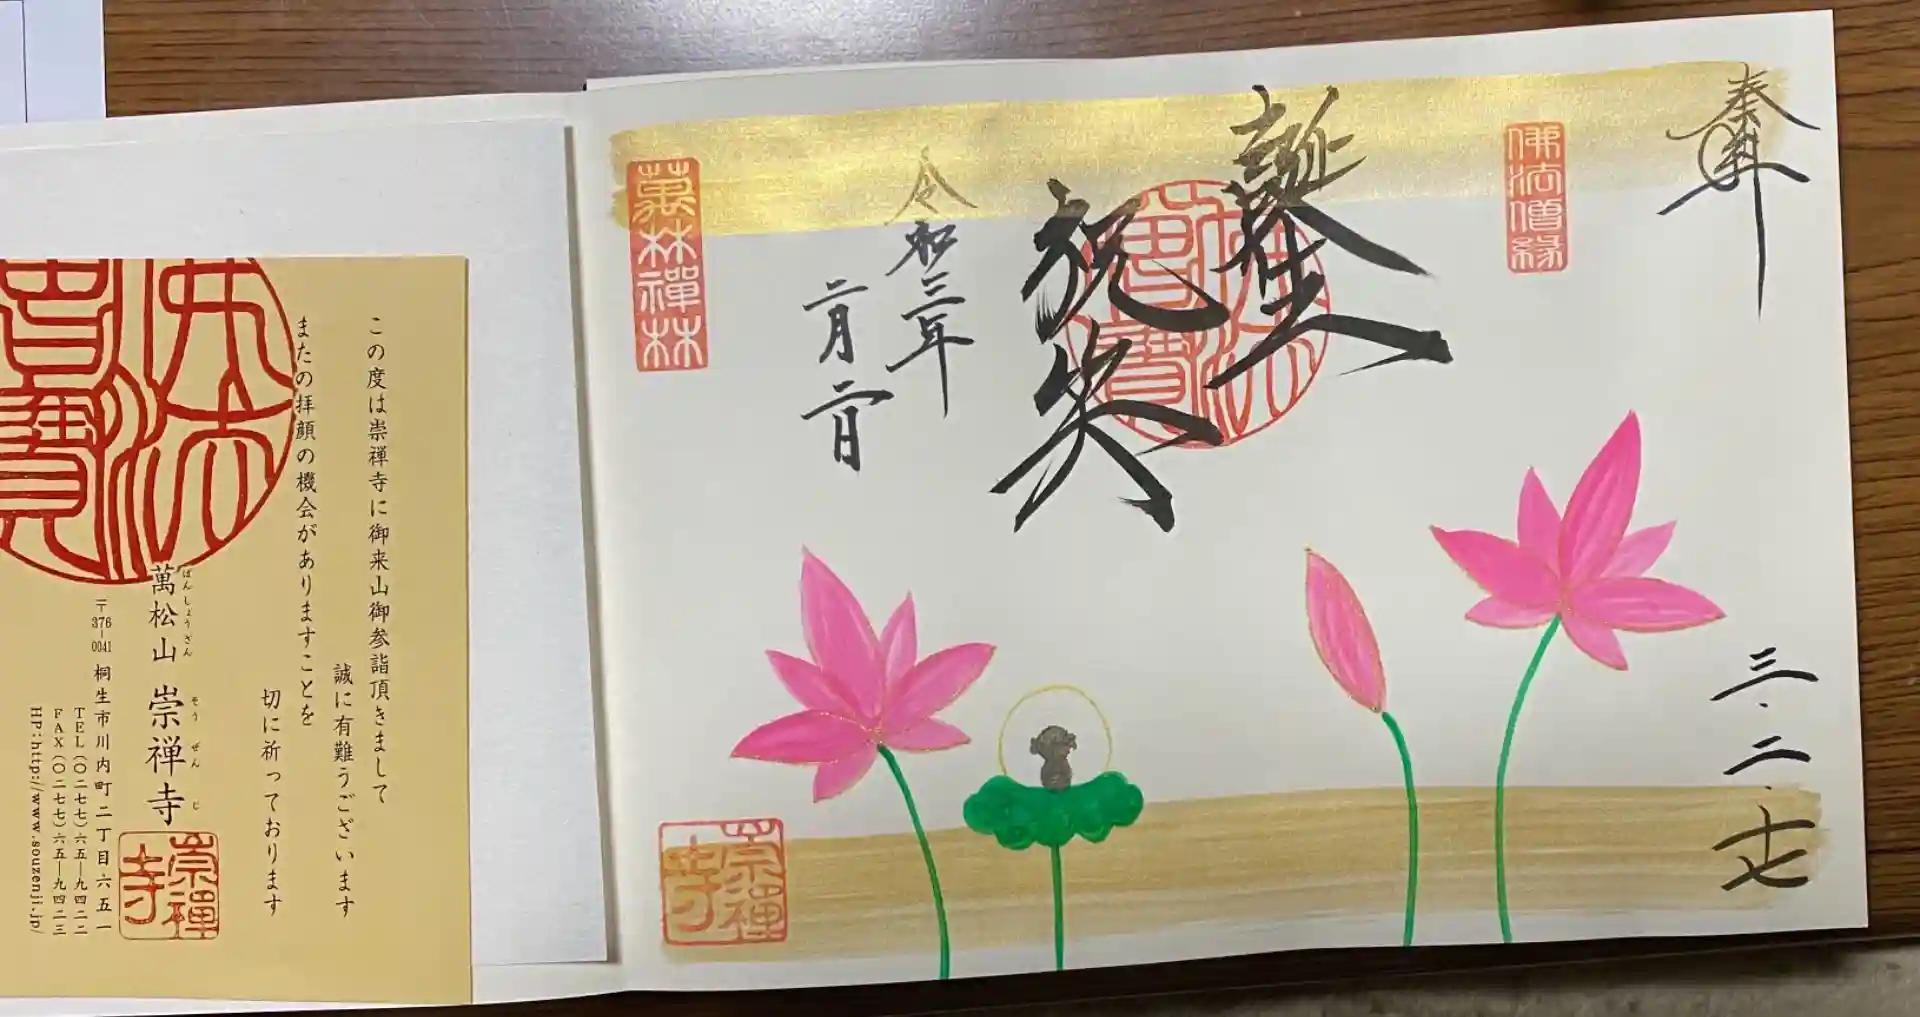 奉拝
三・二・十七
佛法僧縁
誕生
祝
佛法僧寶
令和三年
二月二日
萬松禪林
崇禪寺
この度は崇禅寺に御来山御参詣頂きまして
誠に有難うございます
またの拝顔の機会がありますことを
切に祈っております
佛法僧寶
ばんしょうざん そうぜんじ
萬松山 崇禅寺
崇禪寺
〒376-0041 桐生市川内町二丁目六五一
TEL(〇二七七)六五―九四二二
FAX(〇二七七)六五―九四二三
HP:http://www.souzenji.jp/